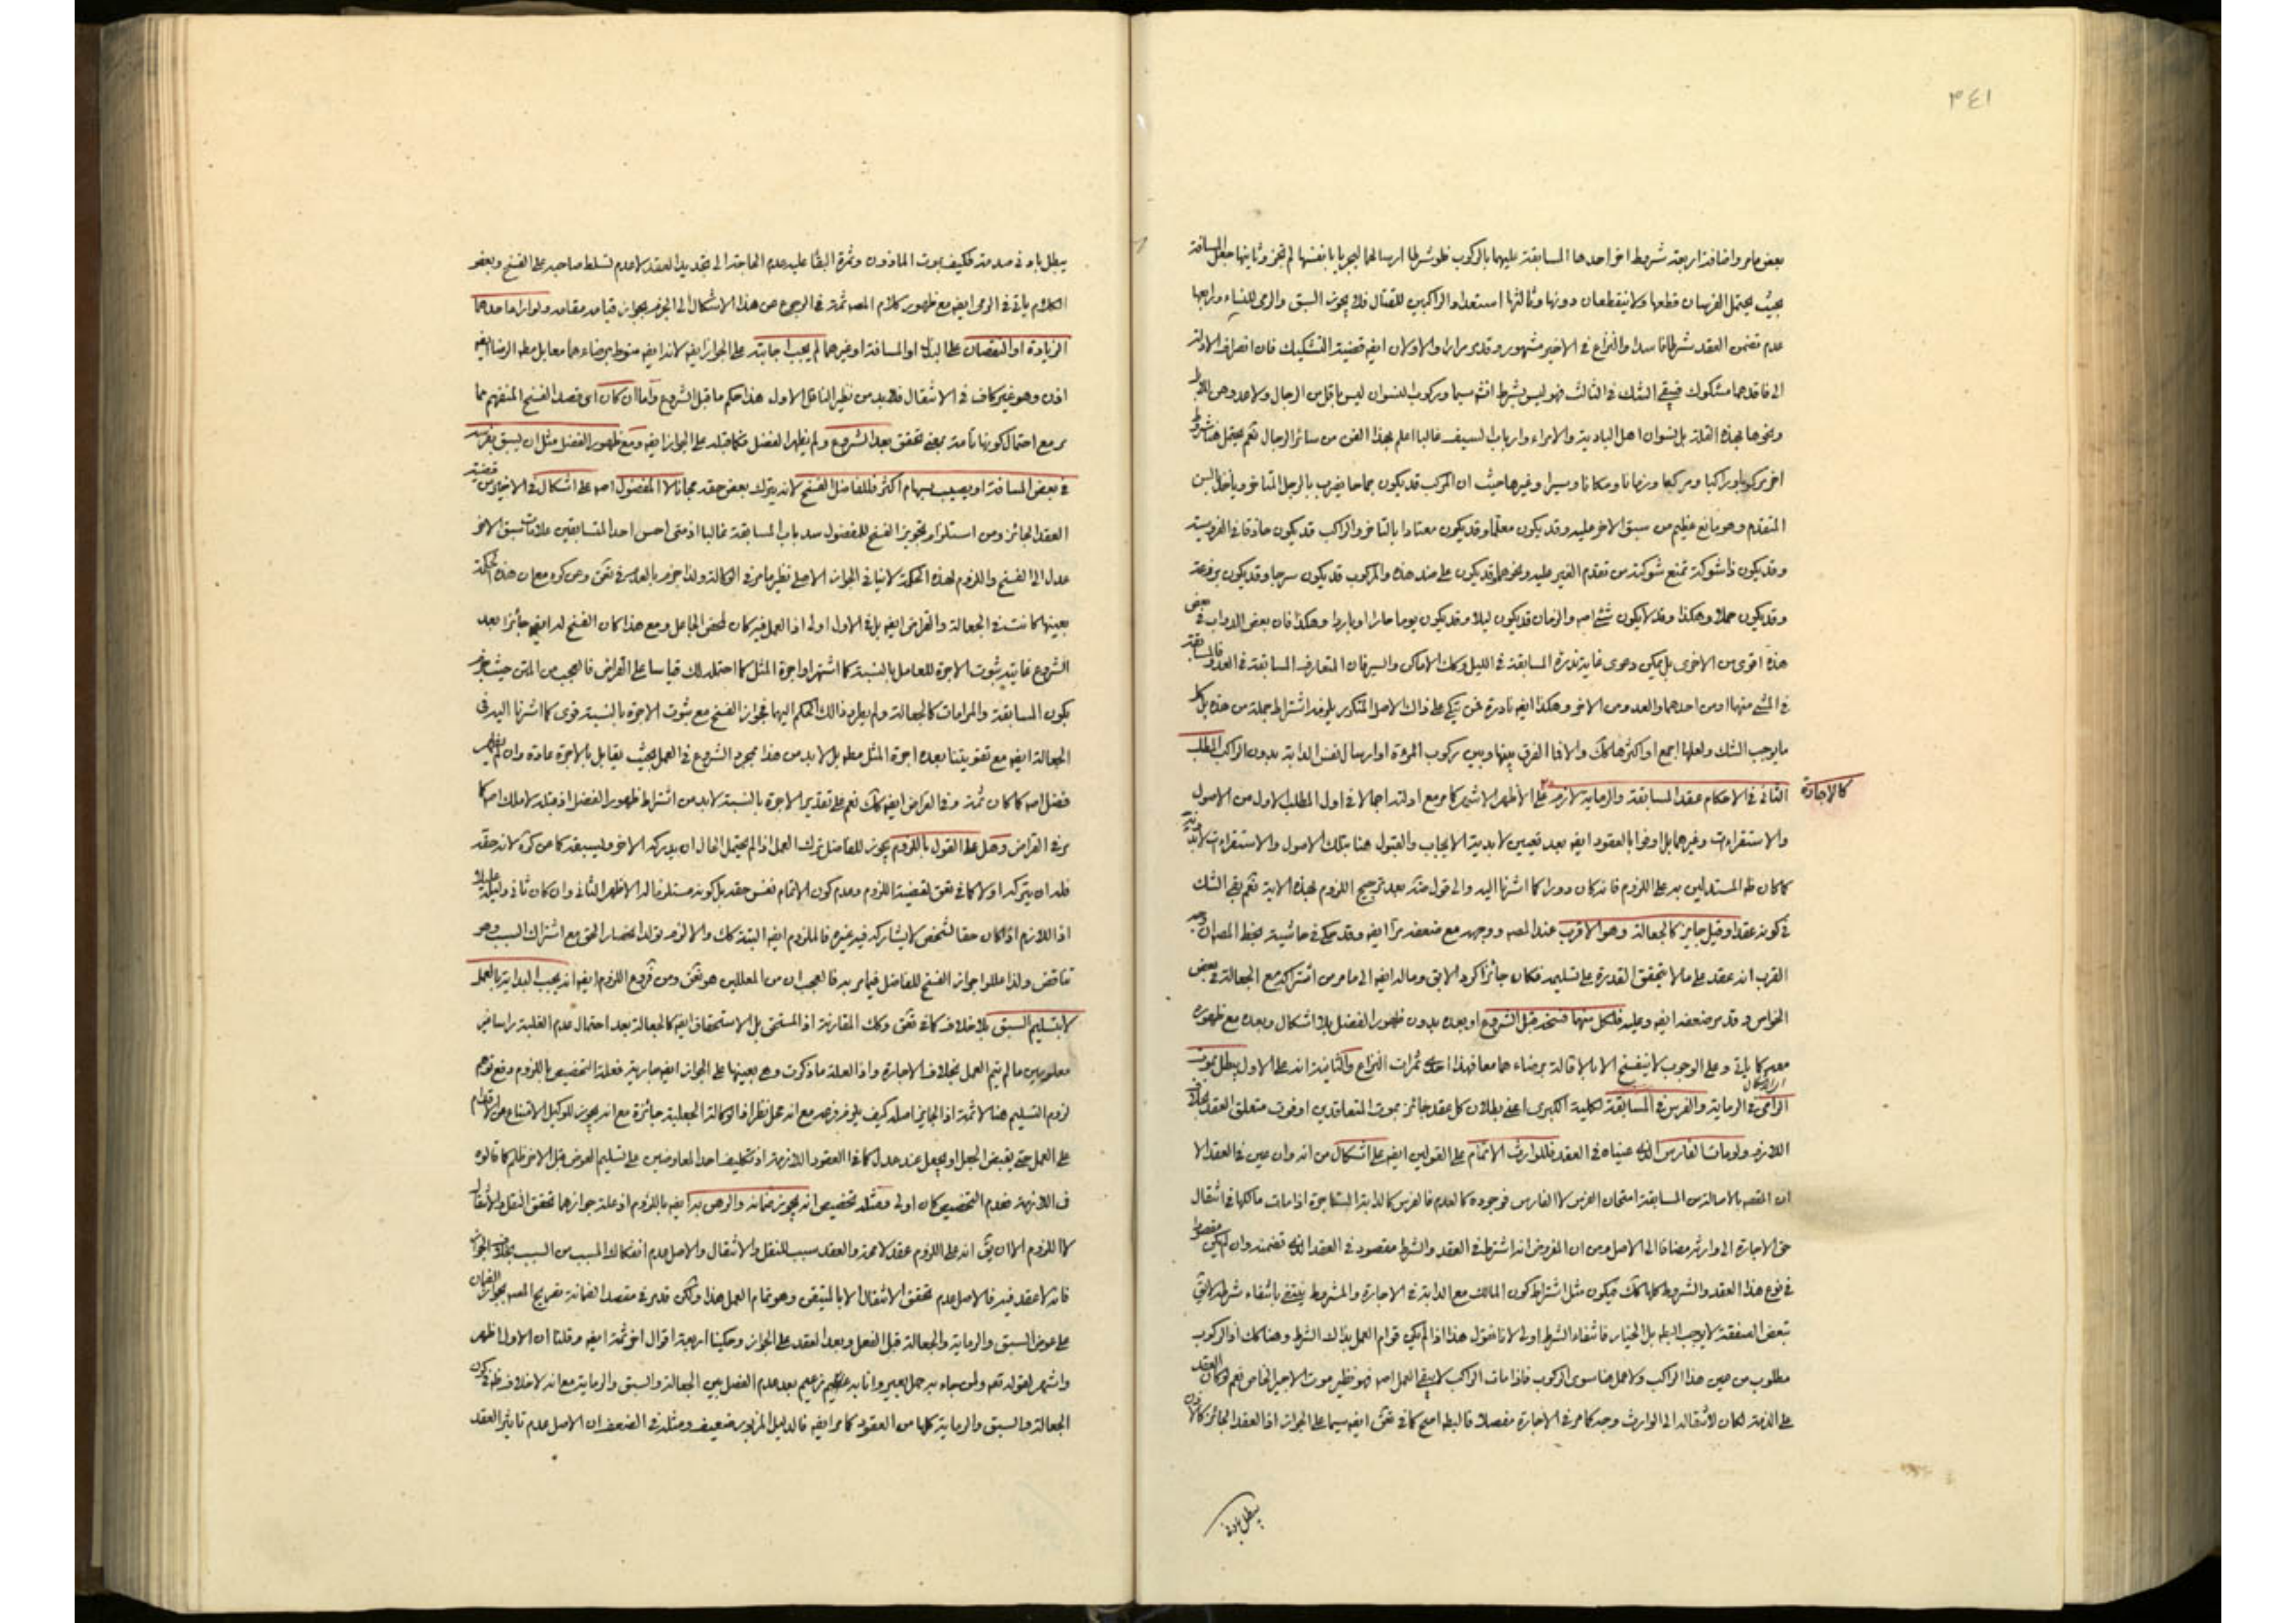 ٣٤١
بعض ما مر واضافة اربعة شروط اخر احدها المسابقة عليهما بالركوب فلو شرطا ارسالهما ليجريا بانفسهما لم يجز وثانيها جعل المسافة
بحيث يحتمل الفرسان قطعها ولا ينقطعان دونها وثالثها استعداد الراكبين للقتال فلا يجوز السبق والرمي للنساء ورابعها
عدم تضمن العقد شرطا فاسدا والنزاع في الاخير مشهور وقد مر مرارا والاولان ايضه قضية التشكيك فان انصراف الادلة
الى فاقدهما مشكوك فيبقى الشك في الثالث فهو ليس بشرط انثم سيما وركوب النسوان ليس باقل من الرجال ولا عدوهن
ونحوها بهذه القلة بل نسوان اهل البادية والامراء وارباب السيف غالبا اعلم بهذا الفن من سائر الرجال نعم يحتمل هنا شروط
اخر مركوبا وراكبا ومركبا وزمانا ومكانا وسيرا وغيرها حيث ان المركب قد يكون جماحا يضرب بالرجل المتاخر وياخذ السن
المتقدم وهو مانع عظيم من سبق الاخر عليه وقد يكون معلما وقد يكون معتادا بالتاخر والراكب قد يكون حاذقا في الفروسية
وقد يكون ذا شوكة تمنع شوكته من تقدم الغير عليه ونحوهما وقد يكون على ضد هذه والمركوب قد يكون سرجا وقد يكون بردعة
وقد يكون حملا وهكذا وقد لا يكون شئ اصه والزمان قد يكون ليلا وقد يكون يوما حارا او باردا وهكذا فان بعض الدواب في بعض
هذه اقوى من الاخرى بل يمكن دعوى غاية ندرة المسابقة في الليل وكك الاماكن والسير فان المتعارف المسابقة في العدو فالمسابقة
في المشي منهما او من احدهما والعدو من الاخر وهكذا ايضه نادرة
ما يوجب الشك ولعلها اجمع او اكثرها كك والا فما الفرق بينها وبين ركوب المرءة او ارسال نفس الدابة بدون الراكب المطلب
الثاني في الاحكام عقد المسابقة والرماية لازم على الأظهر الاشهر كما مر مع ادلته اجمالا في اول المطلب الاول من الاصول
كالاجارة
والاستقراءات وغيرهما بل اوفوا بالعقود ايضه بعد تعيين لابدية الايجاب والقبول هنا بتلك الاصول والاستقراءات
كما كان ظه المستدلين به على اللزوم فانه كان دورا كما اشرنا اليه والى قول منه بعد ترجيح اللزوم بهذه الاية نعم بقي الشك
في كونه عقدا وقيل جايز كالجعالة وهو الاقرب عند المصه ووجهه مع ضعفه مر ايضه وقد حكي في حاشية بخط المصه ان وجه
القرب انه عقد على ما لا يتحقق القدرة على تسليمه فكان جائزا كرد الابق وماله ايضه الى ما مر من اشتراكه مع الجعالة في بعض
الخواص وقد مر ضعفه ايضه وعليه فلكل منهما فسخه قبل الشروع او بعده بدون ظهور الفضل بلا اشكال وبعده مع ظهوره
معه كما ياتي وعلى الوجوب لا ينفسخ الا بالاقالة برضاءهما معا فهذا احدى ثمرات النزاع والثانية انه على الاول يبطل بموت
الرامي في الرماية والفرس في المسابقة لكلية الكبرى اعنى بطلان كل عقد جائز بموت المتعاقدين او فوت متعلق العقد
اللازم ولو مات الفارس الذى عيناه في العقد فللوارث الاتمام على القولين ايضه على اشكال من انه وان عين في العقد الا
ان المقصه بالاصالة من المسابقة امتحان الفرس لا الفارس فوجوده كالعدم فالفرس كالدابة المستاجرة اذا مات مالكها في انتقال
حق الاجارة الى وارثه مضافا الى الاصل ومن ان المفروض انه اشترط في العقد والشرط مقصود في العقد الذى تضمنه وان لم يكن مقصودا
في نوع هذا العقد والشروط كلها كك فيكون مثل اشتراط كون المالك مع الدابة في الاجارة والمشروط ينتفي بانتفاء شرطه
تبعض الصفقة لا يوجب البطه بل الخيار فانتفاء الشرط اولى لانا نقول هذا اذا لم يكن قوام العمل بذلك الشرط وهنا كك اذ الركوب
مطلوب من عين هذا الراكب ولا عمل هنا سوى الركوب فاذا مات الراكب لا يبقى العمل اصه فهو نظير موت الاجير الخاص نعم لو كان العقد
على الذمة لكان لانتقاله الى الوارث وجه كما مر في الاجارة مفصلا فالبطه اصح كما في تفق ايضه سيما على الجواز اذ العقد الجائز كالاذن
يبطل باد في
يبطل باد في صدمة فكيف بموت الماذون وثمرة البقاء عليه عدم الحاجة الى تجديد العقد لا عدم تسلط صاحبه على الفسخ وبعض
الكلام ياتي في الرمي ايضه مع ظهور كلام المصه ثمة في الرجوع عن هذا الاشكال الى الجزم بجواز قيامه مقامه ولو اراد احدهما
الزيادة او النقصان على البذل او المسافة او غيرهما لم يجب اجابته على الجواز ايضه لانه ايضه منوط برضاءهما معا بل مطه الرضا ايضه
اذن وهو غير كاف في الانتقال فلا بد من نظير الناقل الاول هذا حكم ما قبل الشروع واما ان كان اى قصد الفسخ المتفهم مما
مر مع احتمال كونها تامة بمعنى تحقق بعد الشروع ولم يظهر الفضل فكما قبله على الجواز ايضه ومع ظهور الفضل مثل ان يسبق بفرسه
في بعض المسافة او يصيب بسهام اكثر فللفاضل الفسخ لانه يترك بعض حقه مجانا لا المفضول اصه على اشكال في الاخير من قضية
العقد الجائز ومن استلزام تجويز الفسخ للمفضول سد باب المسابقة غالبا اذ متى احس احد المتسابقين علامات سبق الاخر
عدل الى الفسخ واللزوم لهذه الحكمة لا ينافي الجواز الاصلي نظير ما مر في الوكالة ولذا جزم بالعدم في تفق وهن كره مع ان هذه الحكمة
بعينها كانت في الجعالة والقراض ايضه بل في الاول اولى اذ العمل فيه كان لمحض الجاعل ومع هذا كان الفسخ له ايضه جائزا بعد
الشروع غايته ثبوت الاجرة للعامل بالنسبة كما اشتهر او اجرة المثل كما احتمله لك قياسا على القراض فالعجب من المتن حيث جزم
بكون المسابقة والمرامات كالجعالة ولم يطرد ذالك الحكم اليهما فجواز الفسخ مع ثبوت الاجرة بالنسبة قوى كما اشرنا اليه في
الجعالة ايضه مع تقويتنا بعده اجرة المثل مطه بل لا بد من هذا بمجرد الشروع في العمل بحيث يقابل بالاجرة عادة وان لم يظهر
فضل اصه كما كان ثمة وفي القراض ايضه كك نعم على تقدير الاجرة بالنسبة لا بد من اشتراط ظهور الفضل اذ قبله لا ملك اصه كما
مر في القراض وهل على القول باللزوم يجوز للفاضل ترك العمل اذا لم يحتمل الحال ان يدركه الاخر وليسبقه كما من كره لانه حقه
فله ان يتركه او لا كما في تفق لقضية اللزوم وعدم كون الاتمام نفس حقه بل كونه مستلزما له الاظهر الثاني وان كان ثاني دليله عليلا
اذ اللازم اذا كان حقا لشخص لا يشاركه فيه غيره فالملزوم ايضه البتة كك والا لزم تولد انحصار الحق مع اشتراك السبب وهو
تناقض ولذا عللوا جواز الفسخ للفاضل فيما مر به فالعجب ان من المعللين هو تفق ومن فروع اللزوم ايضه انه يجب البداية بالعمل
لا بتسليم السبق بلا خلاف كما في تفق وكك المقارنة اذ المستحق بل الاستحقاق ايضه كالجعالة بعد احتمال عدم الغلبة راسا غير
معلومين ما لم يتم العمل بخلاف الاجارة واذ العلة ما ذكرت وهي بعينها على الجواز ايضه جارية فعلة التخصيص باللزوم دفع توهم
لزوم التسليم هنا لا ثمة اذ الجايز اصله كيف
على العمل حتى يقبض الجعل او يجعل عند عدل كما في العقود اللازمة اذ تكليف احد المعاوضين على تسليم العوض قبل الاخر ظلم كما قالوه
في اللازمة فعدم التخصيص كان اولى ومثله تخصيص انه يجوز ضمانه والرهن به ايضه باللزوم اذ علة جوازهما تحقق النقل والانتقال
لا اللزوم الا ان يق انه على اللزوم عقد لا محة والعقد سبب للنقل والانتقال والاصل عدم انفكاك المسبب من السبب بخلاف الجواز
فانه لا عقد فيه فالاصل عدم تحقق الانتقال الا بالمتيقن وهو تمام العمل هذا ولكن قد مر في مقصد الضمانة تصريح المصه بجواز الضمان
على عوض السبق والرماية والجعالة قبل الفعل وبعد العقد على الجواز وحكينا اربعة اقوال اخر ثمة ايضه وقلنا ان الاول اظهر
واشهر لقوله تعه ولمن جاء به حمل بعير وانا به زعيم بعد عدم الفصل بين الجعالة والسبق والرماية مع انه لا خلاف ظه في كون
الجعالة والسبق والرماية كلها من العقود كما مر ايضه فالدليل المزبور ضعيف ومثله في الضعف ان الاصل عدم تاثير العقد